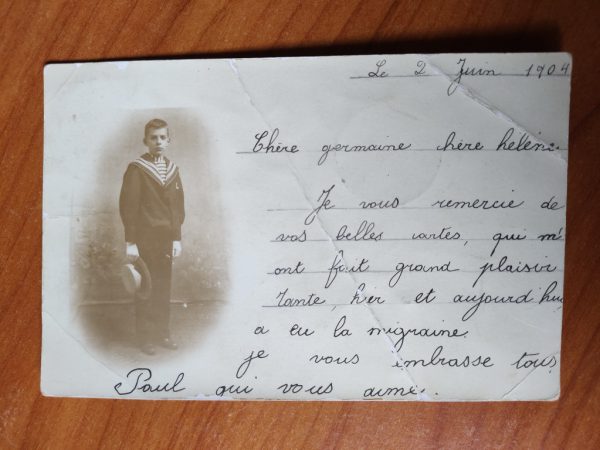 Le 2 Juin 1904
Chère germaine chère hélène
Je vous remercie de
vos belles cartes, qui m'
ont fait grand plaisir
Tante, hier et aujourd'hui,
a eu la migraine.
je vous embrasse tous
Paul qui vous aime.